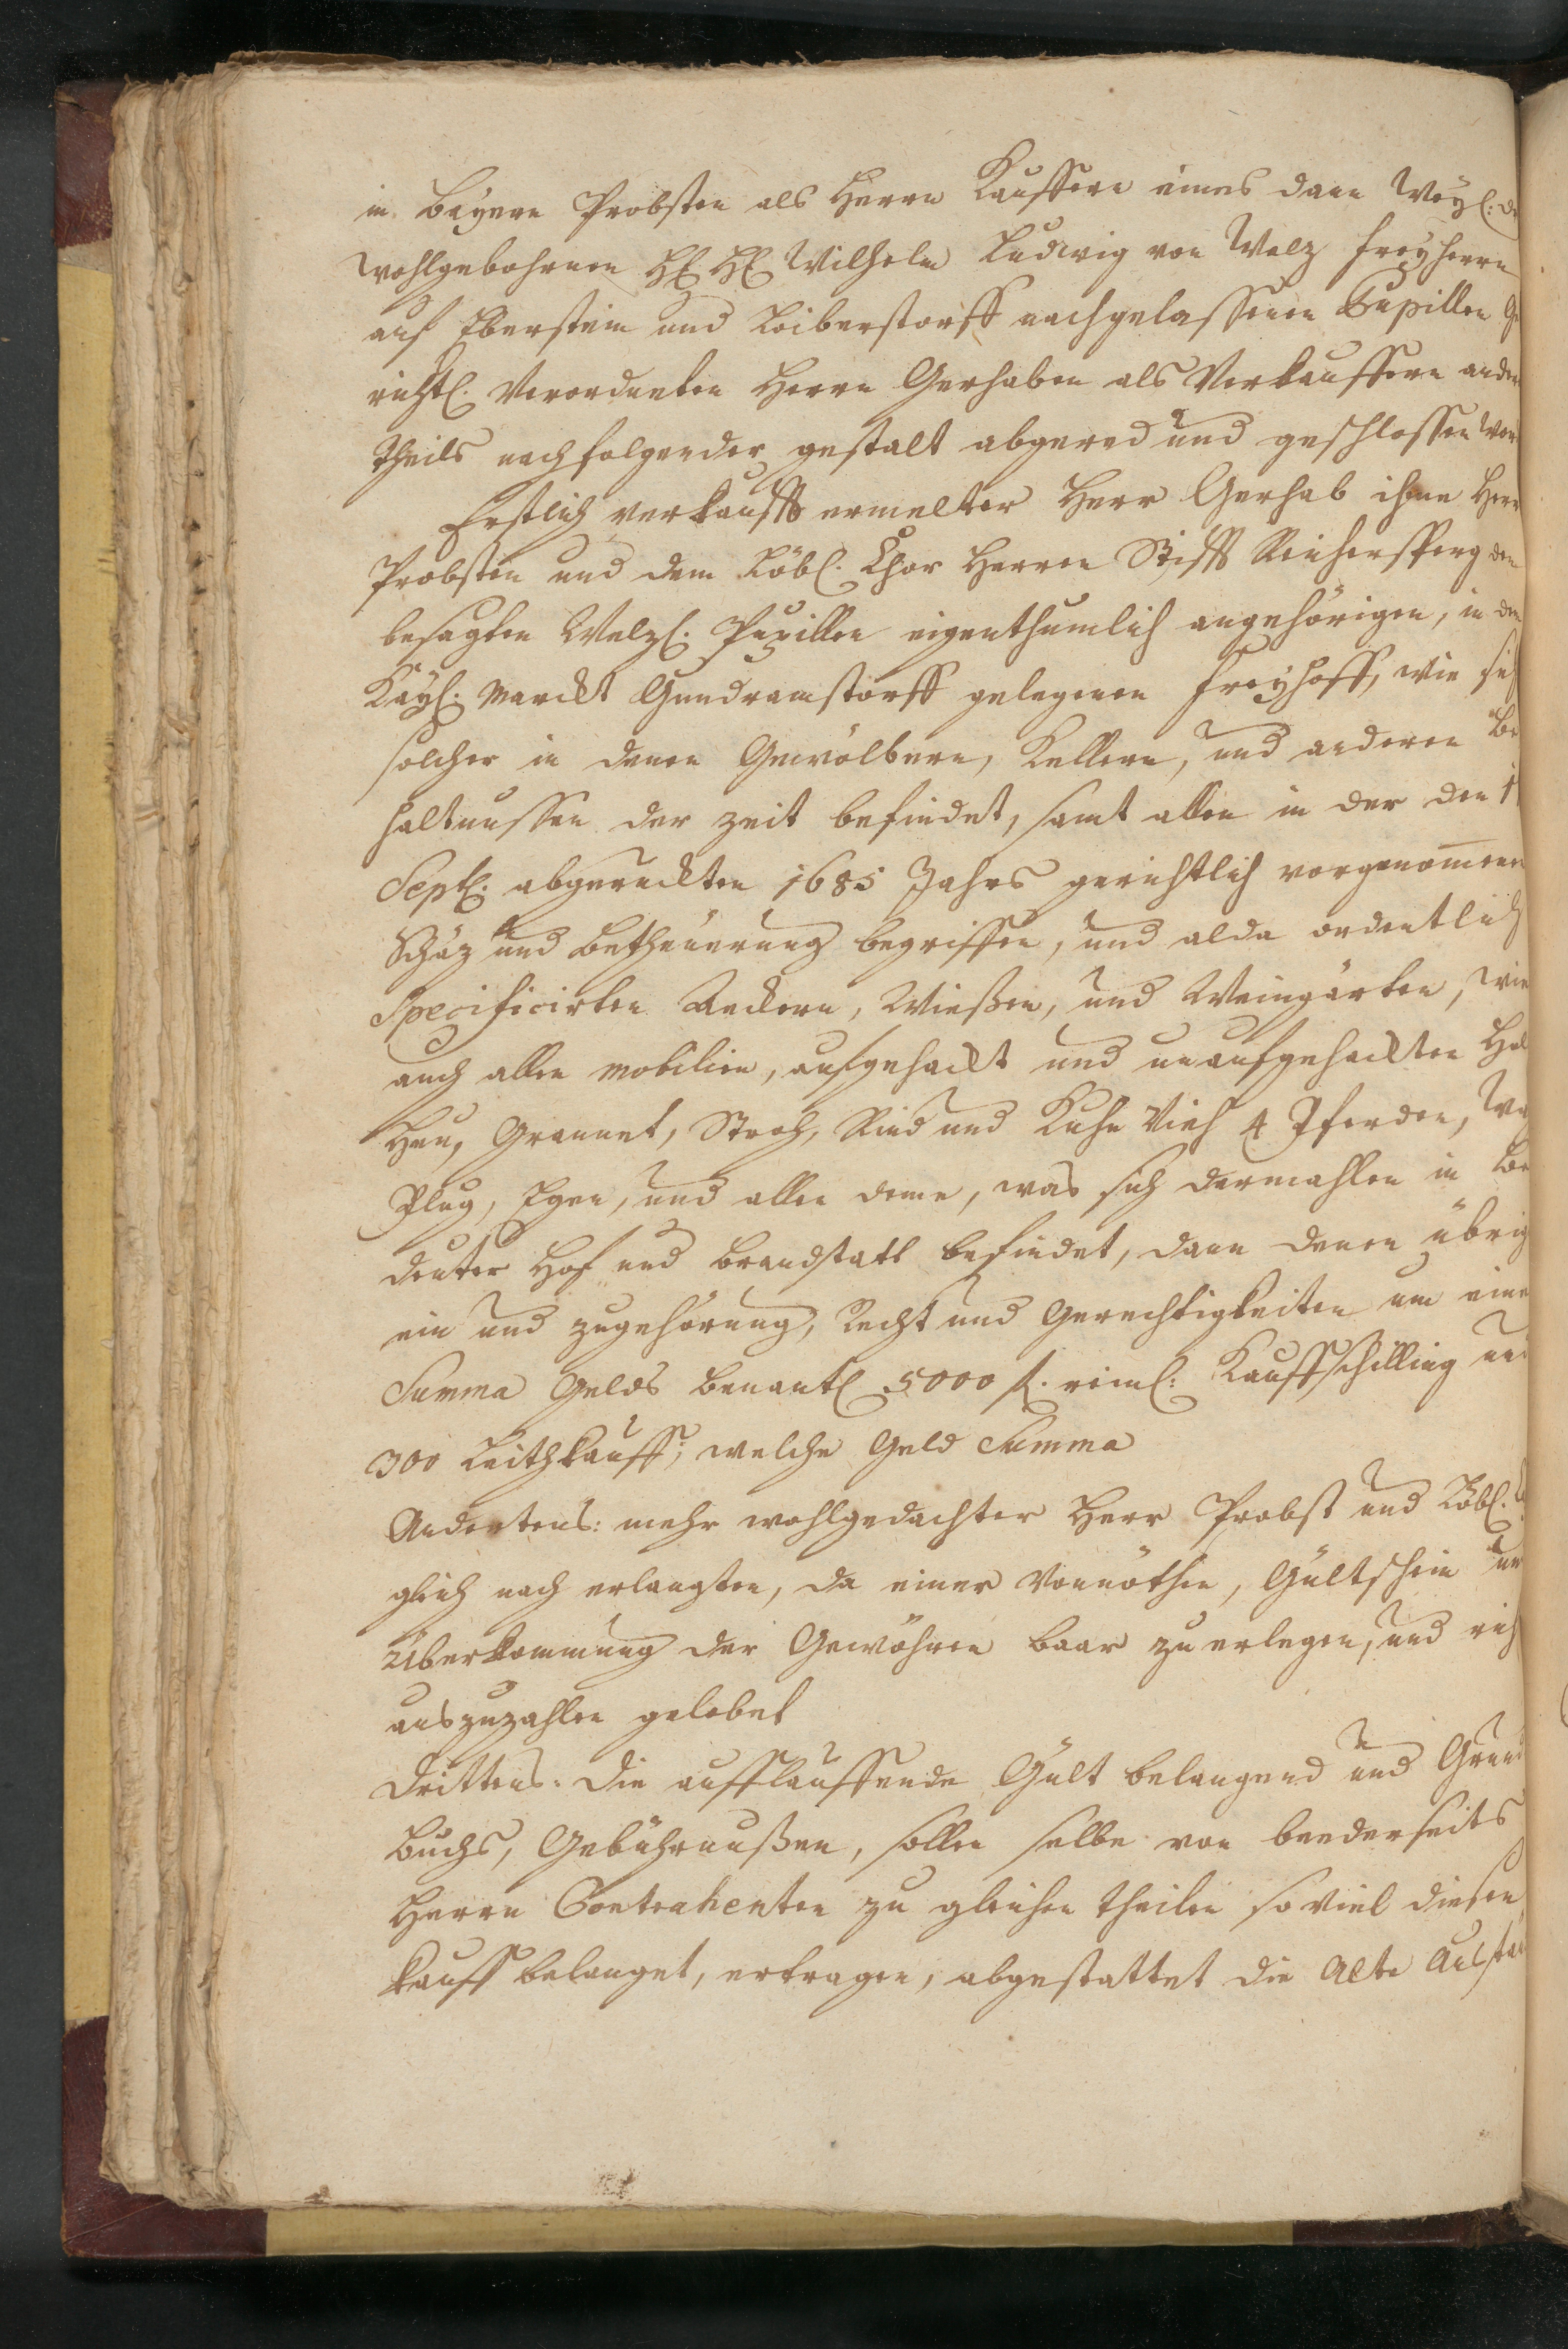 in Bayern Probsten als Herrn Kauffern eines dann Weyl:
wohlgebohrnen H: H: Wilhelm Ludwig von Welz Freyherrn
auf Eberstein und Loiberstorff nachgelassenen Pupillen Ge
richtl. Verordneten Herrn Gerhaben als Verkauffern andern
theils nachfolgender gestalt abgered und geschlossen
Erstlich verkaufft ermelter Herr Gerhab ihme Herr
Probsten und dem Löbl. Chor Herren Stifft Reichersperg den
besagten Welzl. Pupillen eigenthumlich angehörigen, in dem
Kayl. Marckt Gundramstorff gelegenen Freyhoff, wie sich
solcher in denen Gewölbern, Kellern, und anderen Be
haltnussen der zeit befindet, samt allen in der den
Septl. abgeruckten 1685 Jahrs gerichtlich vorgenom̅enen
Schäz und Betheuerung begriffen, und alda ordentlich
Specificirten Äeckern, Wießen, und Weingärten, wie
auch allen Mobilien, aufgehackt und unaufgehackten
Heu, Grannet, Stroh, Rind und Kuhe Vieh 4 Pferden,
Plug, Egen, und allen deme, was sich dermahlen in be
deuter Hof und brandstatt befindet, dann denen übrig
ein und zugehörung, Recht und Gerechtigkeiten um eine
Summa Gelds benantl. 5000 fl. reinl: Kauffschilling und
300 Leithkauff; welche Geld Summa
Andertens: mehr wohlgedachter Herr Probst und Löbl.
gleich nach erlangten, da einer Vonnöthen, Gültschein und
Überkommung der Gewöhren baar zu erlegen, und
auszuzahlen gelobet
Drittens: die aufflauffende Gült belangend und Grund
Buchs, Gebührnußen, sollen selbe von beederseits
Herrn Contrahenten zu gleichen theilen so viel diesen
kauff belanget, ertragen, abgestattet die Alte